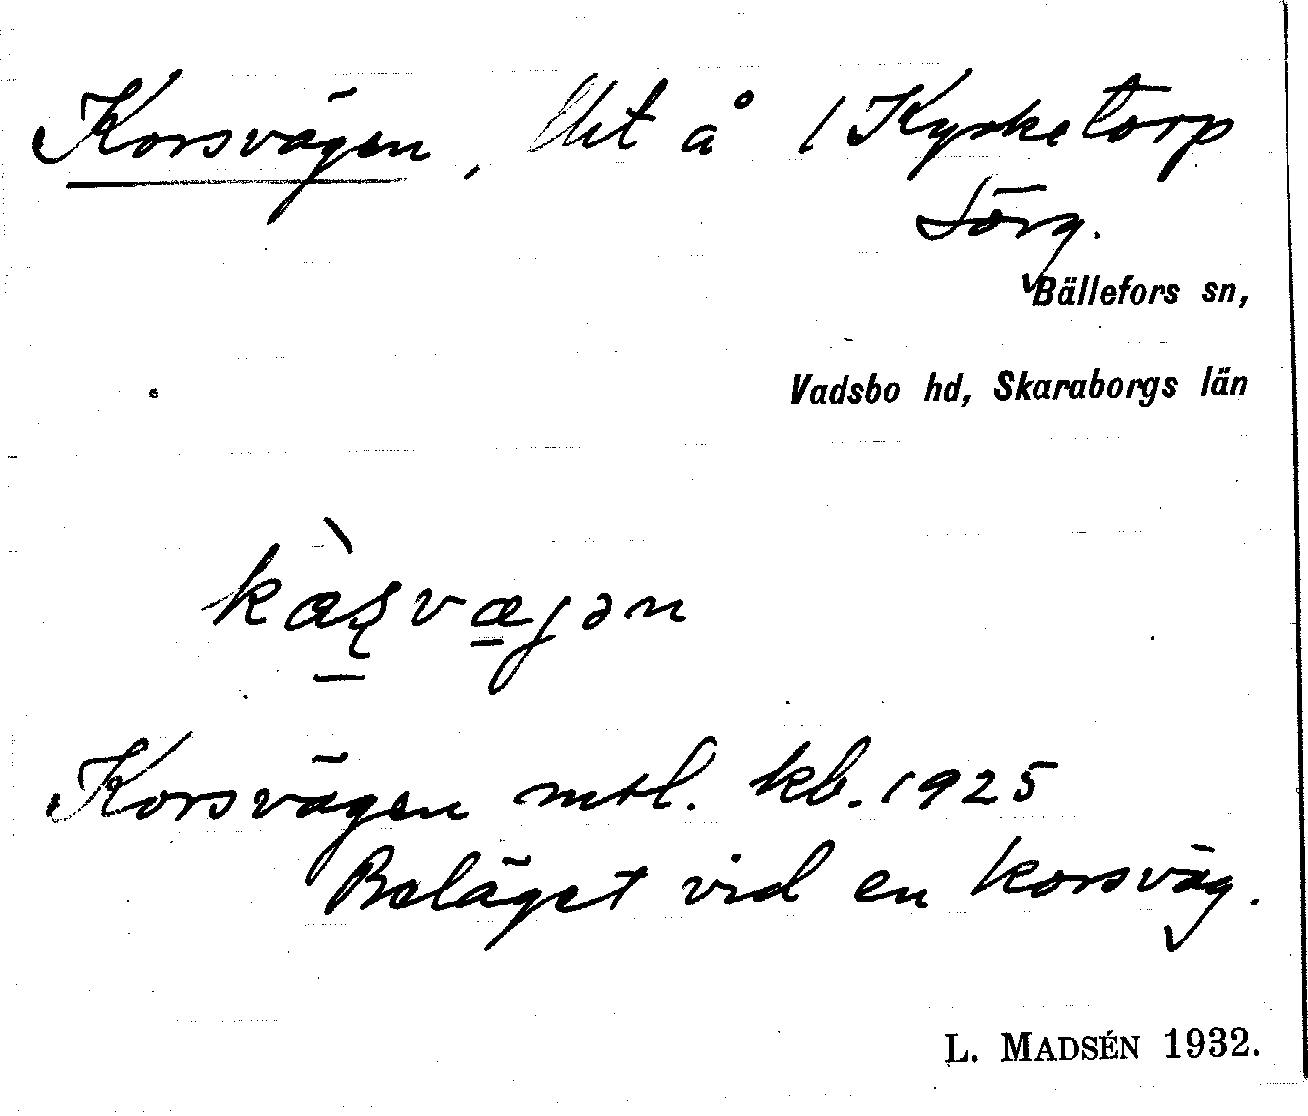 Korsvägen, lht å 1 Kyrketorp
Sörg.
Bällefors sn,
Vadsbo hd, Skaraborgs län
Korsvägen mtl. kb. 1925
Beläget vid en korsväg.
L. MADSÉN 1932.